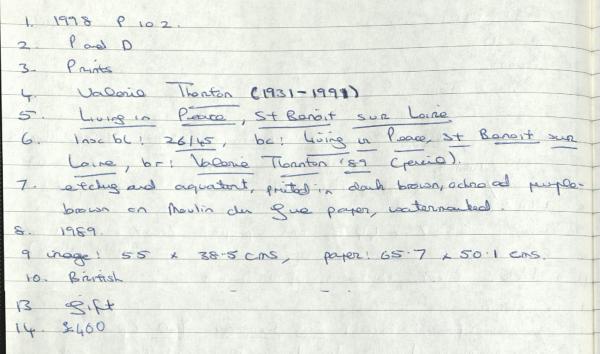 1. 1998 P 102.
2. P and D
3. Prints
4. Valerie Thornton (1931-1991)
5. Living in Peace, St Benoit sur Loire
6. Insc bl: 26/45, bc: Living in Peace, St Benoit sur
Loire, br: Valerie Thornton '89 (pencil).
7. etching and aquatint, printed in dark brown, ochre and purple-
brown on Moulin du Gue paper, watermarked.
8. 1989.
9 image: 55 x 38.5 cms, paper: 65.7 x 50.1 cms.
10. British
13 gift
14. £400